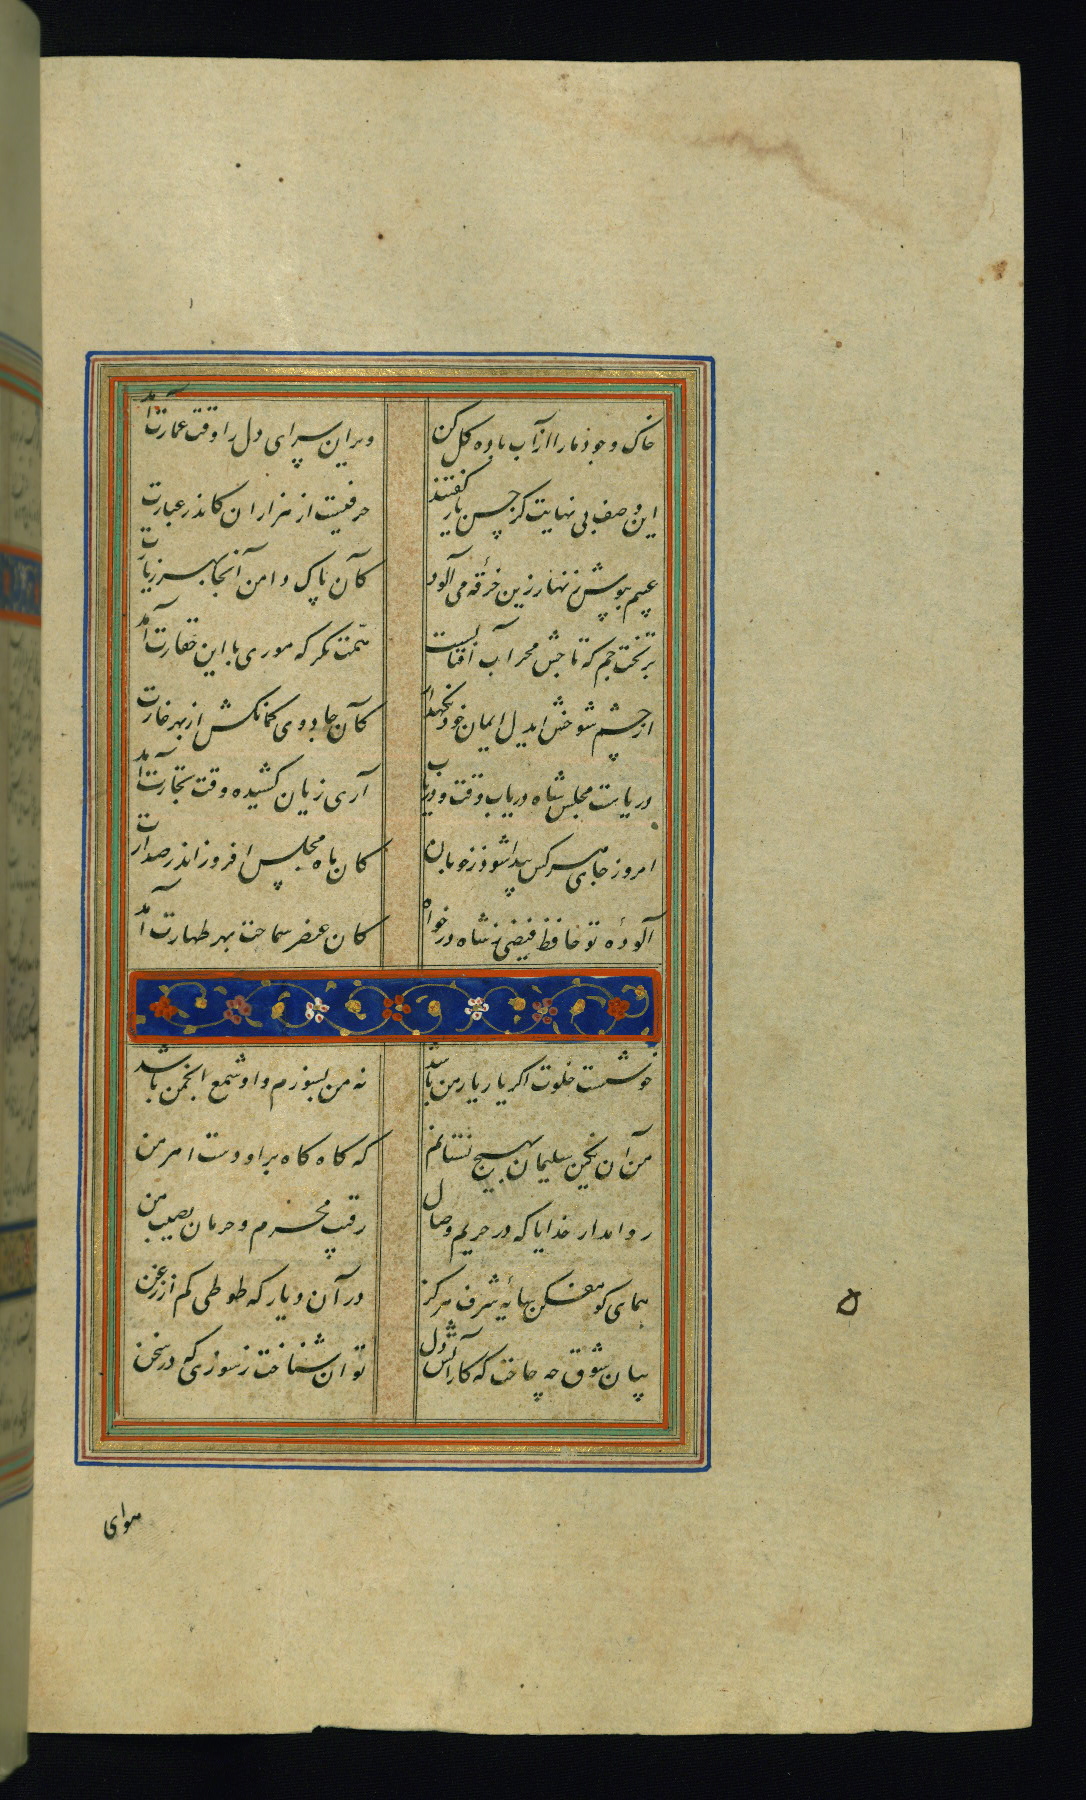 خاک وجود ما را از آب باده کل کن
ویران سرای دل را وقت عمارت آمد
این وصف بی نهایت کز حسن یار کفتند
حرفیست از هزاران کاندر عبارت
عیبم بپوش زنهار زین خرقهٔ می آلود
کآن پاک دامن آنجا بهر زیارت
بر تخت جم که تاجش محراب آفتابست
همت نکر که موری با این حقارت آمد
از چشم شوخش ایدل ایمان خود نکهدار
کآن جادوی کمانکش از بهر غارت
دریاست مجلس شاه دریاب وقت و دریاب
آری زیان کشیده وقت تجارت آمد
امروز جای هر کس پیدا شود ز خوبان
کان ماه مجلس افروز اندر صدارت
آلودهٔ تو حافظ فیضی ز شاه درخواه
کان عنصر سماحت بهر طهارت آمد
خوشست خلوت اکر یار یار من باشد
نه من بسوزم و او شمع انجمن باشد
من آن نکین سلیمان بهیچ نستانم
که کاه کاه بر او دست اهرمن
روا مدار خدایا که در حریم وصال
رقیب محرم و حرمان نصیب من
همای کو مفکن سایهٔ شرف هرکز
در آن دیار که طوطی کم از زغن
بیان شوق چه حاجت که کار آتش دل
توان شناخت ز سوزی که در سخن
هوای